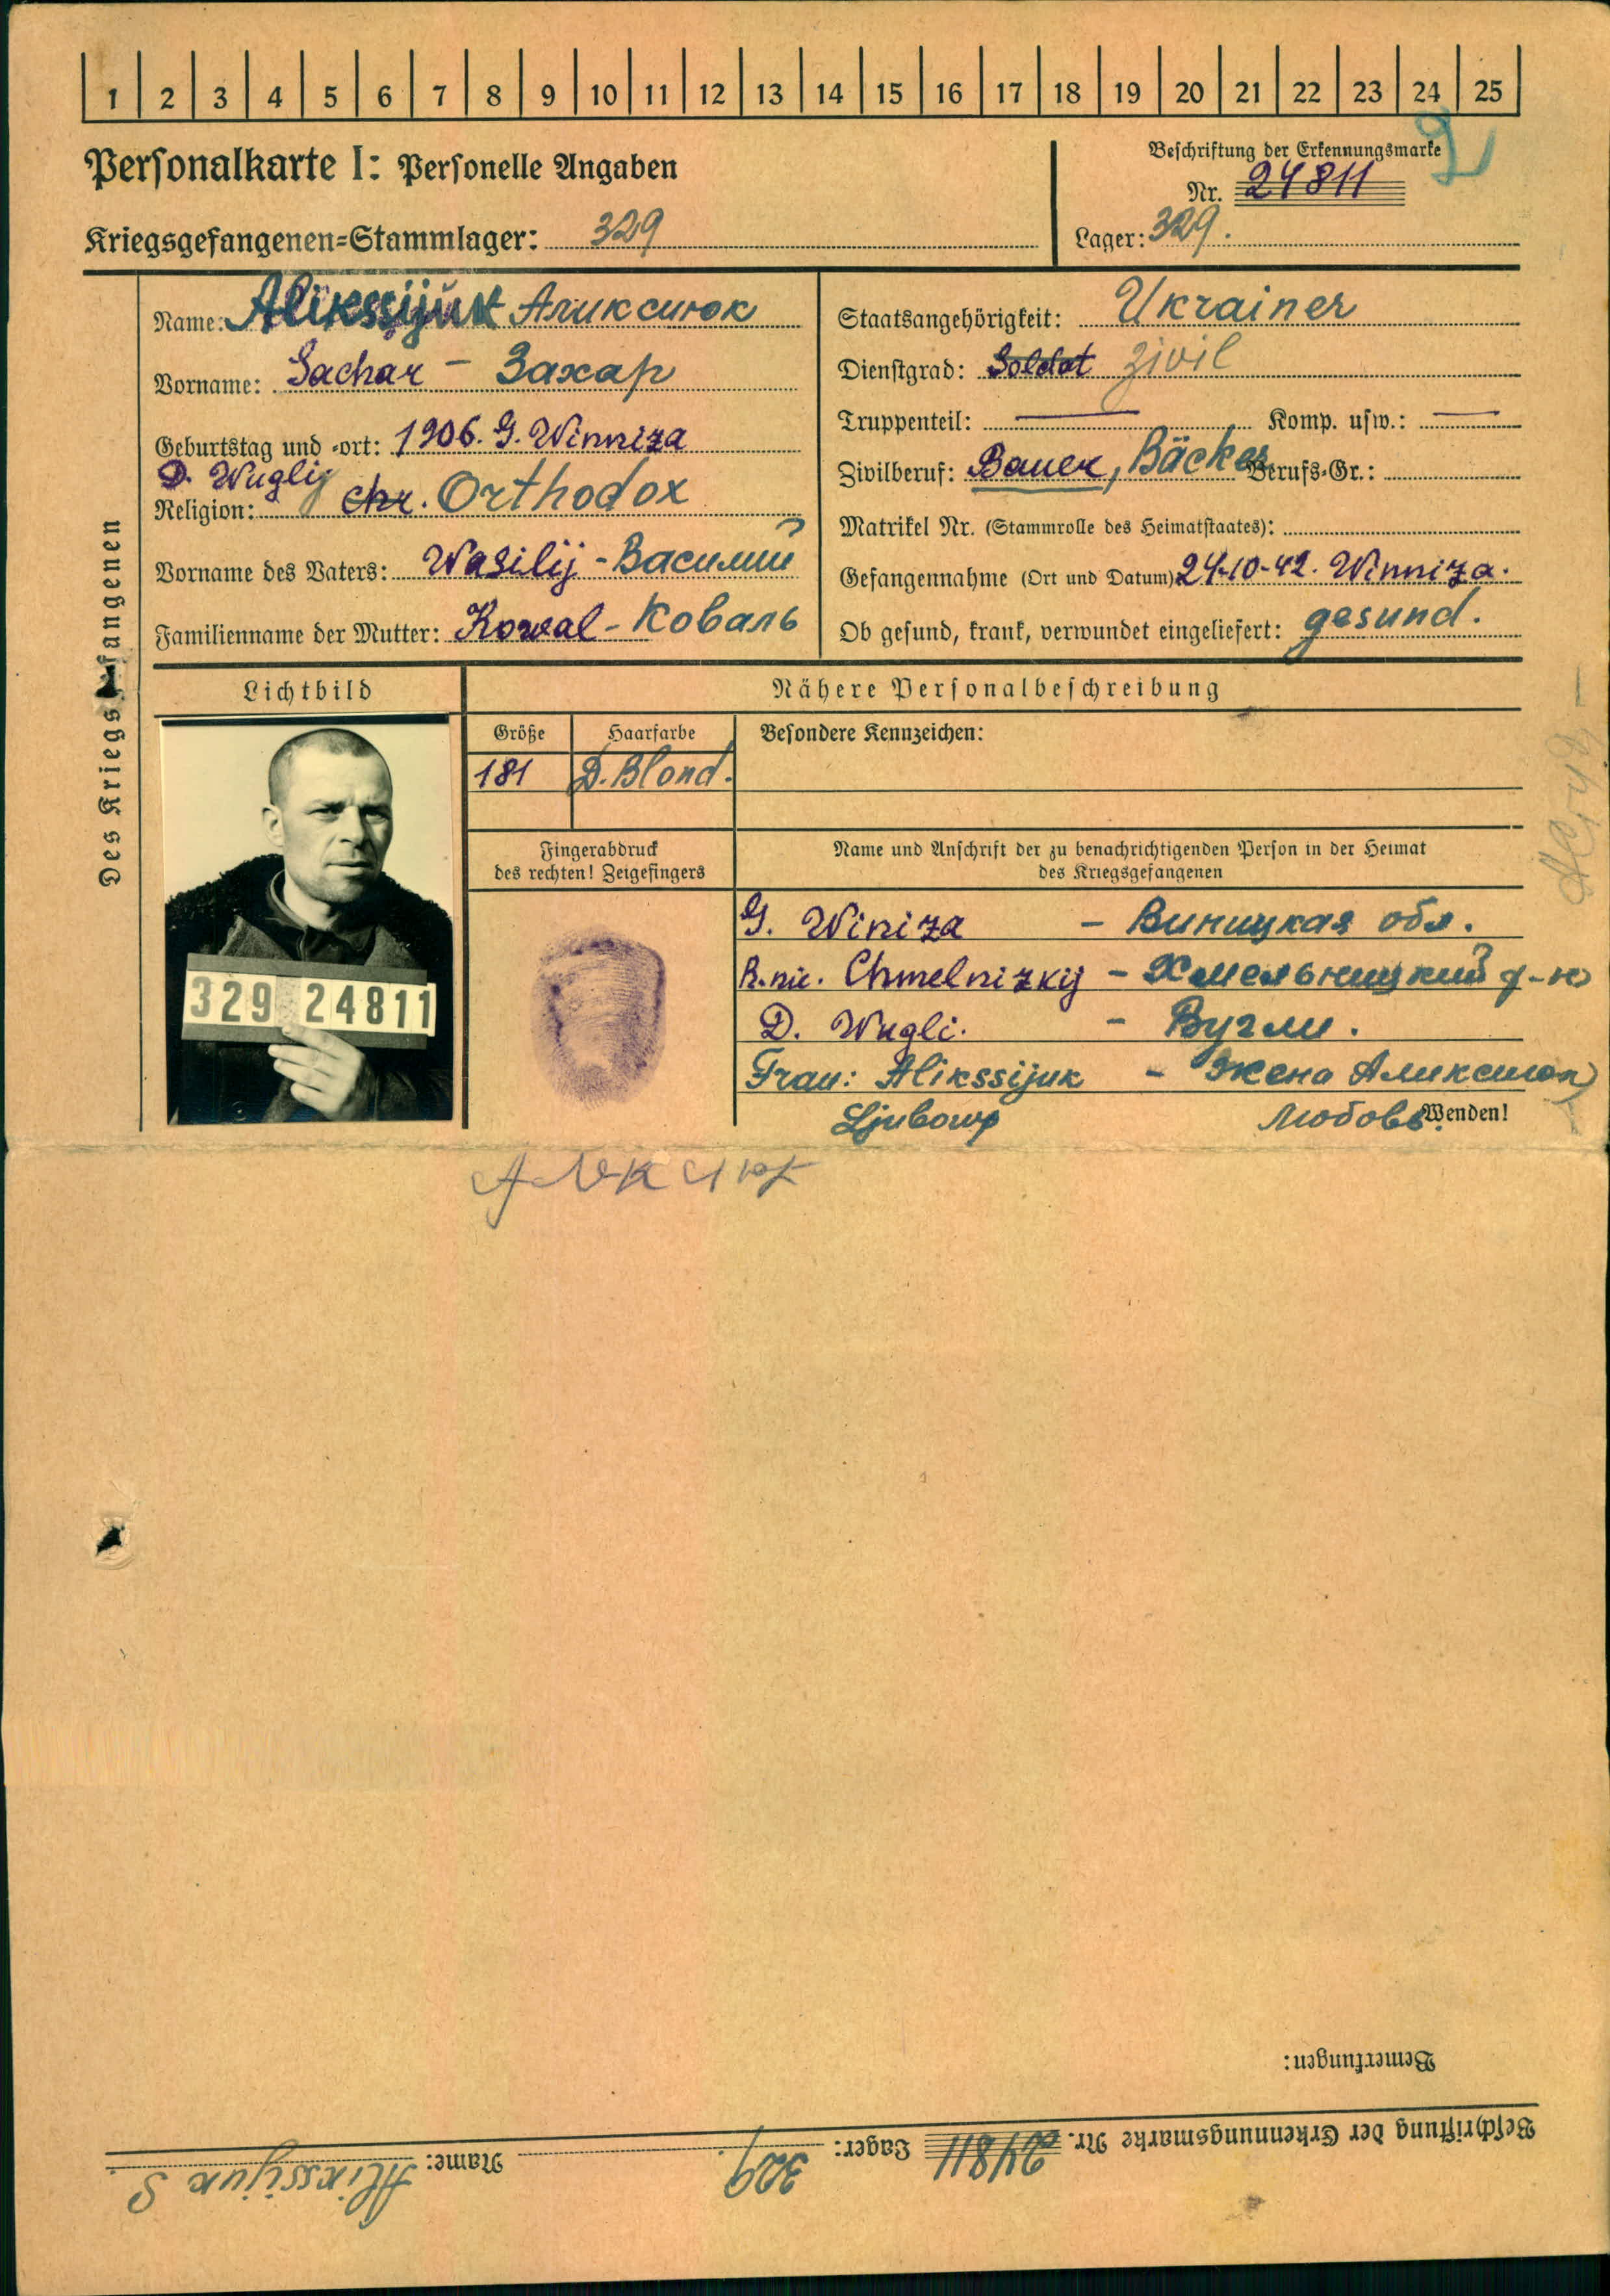 1 2 3 4 5 6 7 8 9 10 11 12 13 14 15 16 17 18 19 20 21 22 23 24 25
Personalkarte I: Personelle Angaben
Kriegsgefangenen=Stammlager: 329
Beschriftung der Erkennungsmarke
Nr. 24811
Lager: 329.
Des Kriegsgefangenen
Name: Alikssijuk Аликсиюк
Vorname: Sachar – Захар
Geburtstag und -ort: 1906. G. Winniza
D. Wuglij
Religion: chr. Orthodox
Vorname des Vaters: Wasilij - Василий
Familienname der Mutter: Kowal - Коваль
Staatsangehörigkeit: Ukrainer
Dienstgrad: Soldat Zivil
Truppenteil: — Komp. usw.: —
Zivilberuf: Bauer, Bäcker Berufs=Gr.:
Matrikel Nr. (Stammrolle des Heimatstaates):
Gefangennahme (Ort und Datum) 24-10-42. Winniza.
Ob gesund, krank, verwundet eingeliefert: gesund.
Lichtbild
329 24811
Nähere Personalbeschreibung
Größe Haarfarbe Besondere Kennzeichen:
181 D. Blond.
Fingerabdruck
des rechten! Zeigefingers
Name und Anschrift der zu benachrichtigenden Person in der Heimat
des Kriegsgefangenen
G. Winiza – Виницкая обл.
Chmelnizkij – Хмельницкий р-н
D. Wugli. – Вугли.
Frau: Alikssijuk – Жена Аликсиюк
Ljubowj Любовь.
Wenden!
Bemerkungen:
Beschriftung der Erkennungsmarke Nr. 24811 Lager: 329. Name: Alikssijuk S.